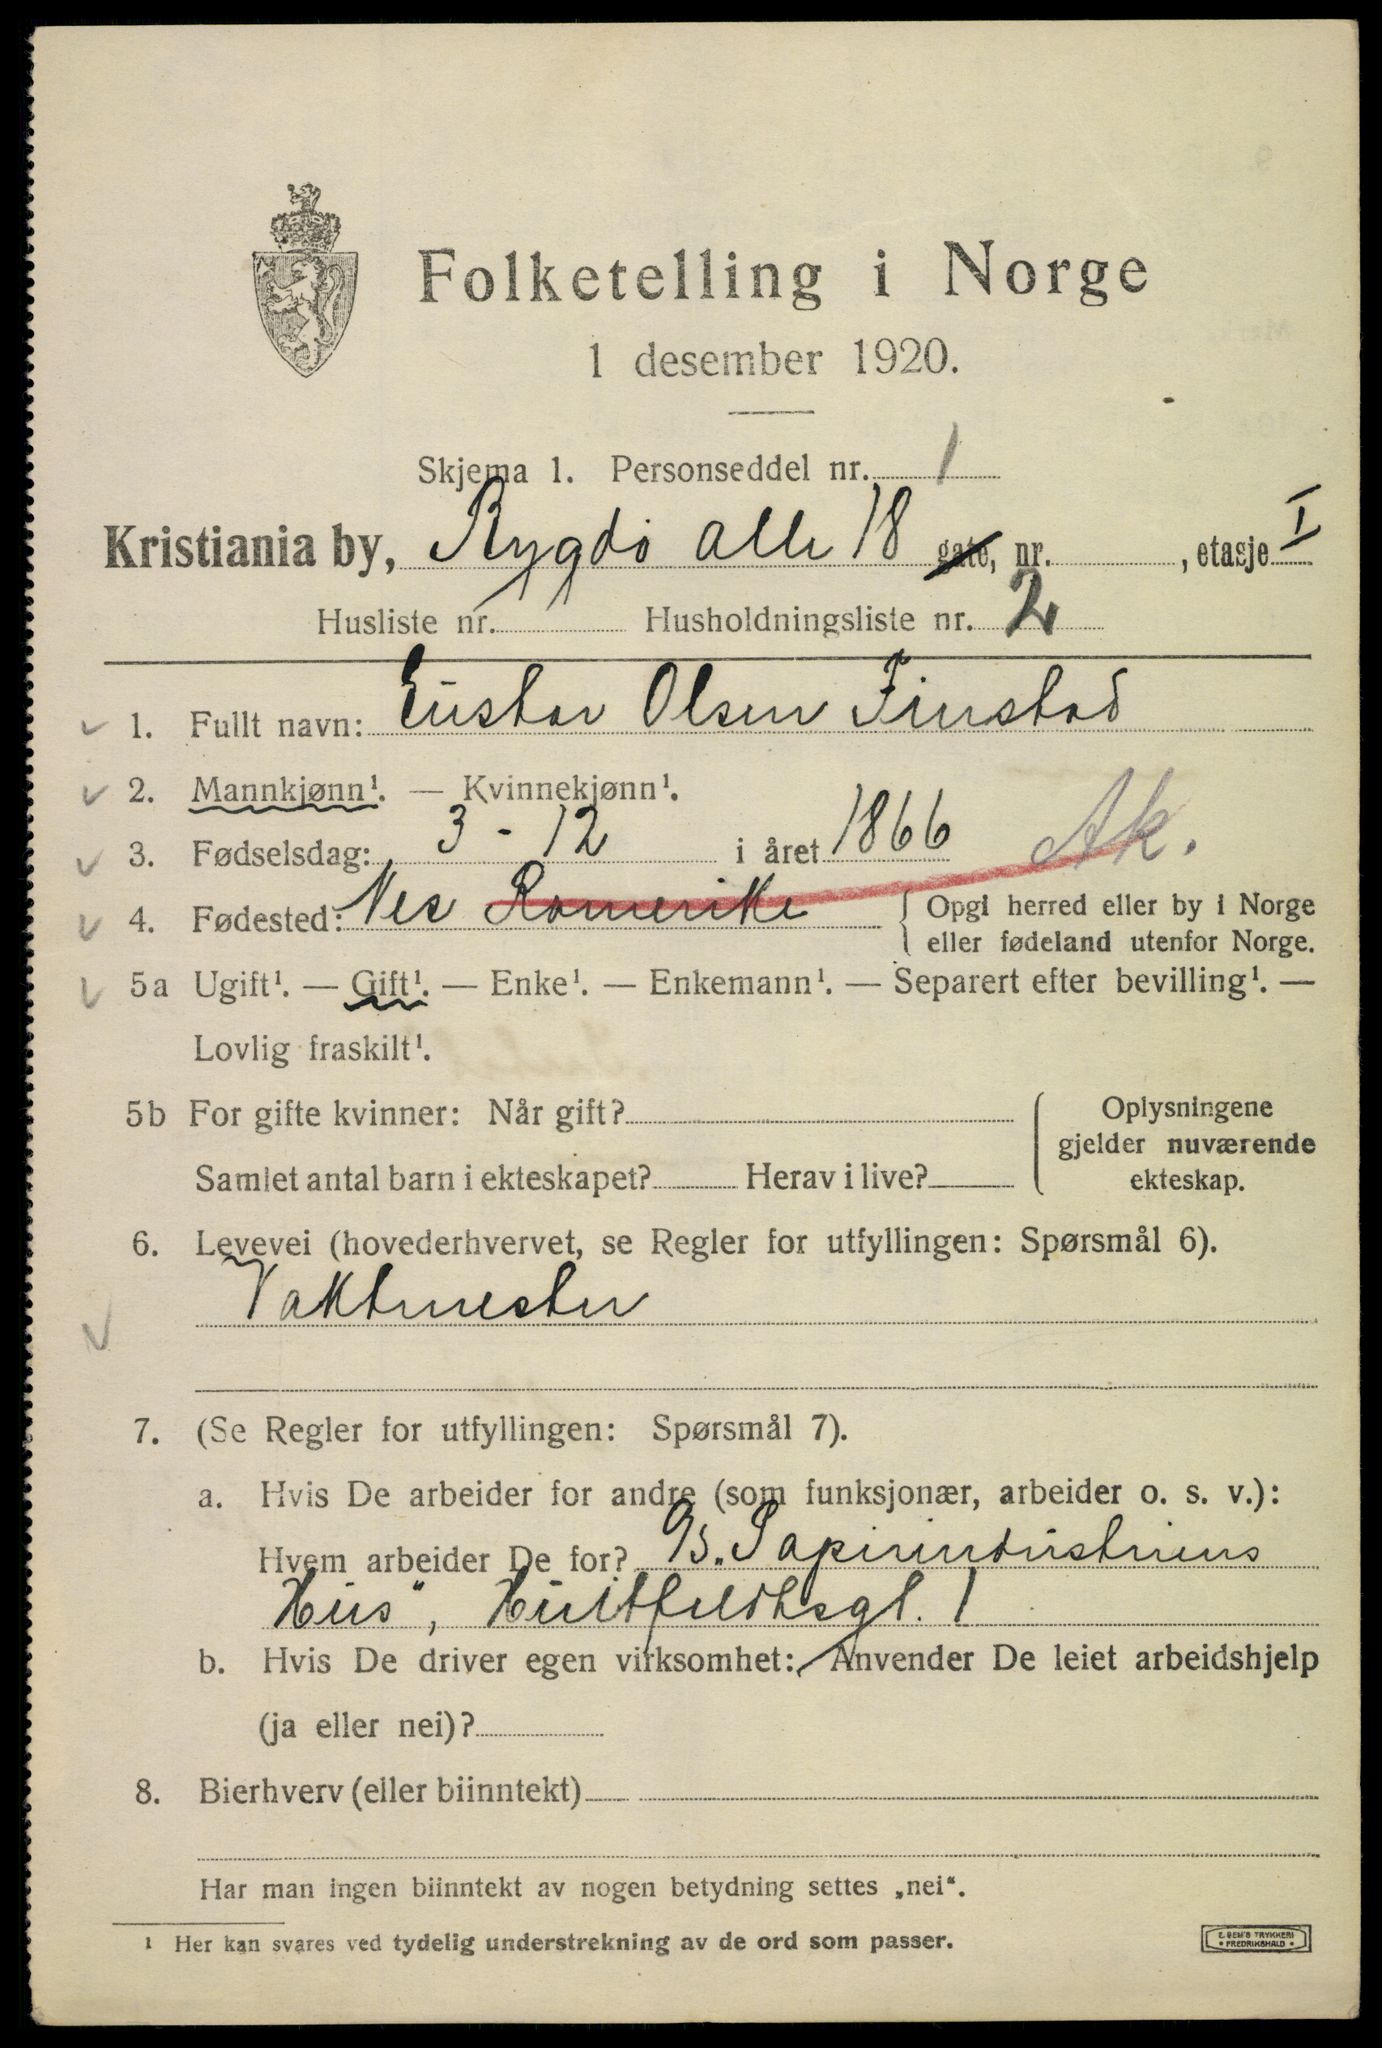 Folketelling i Norge
1 desember 1920.
Skjema 1. Personseddel nr. 1
Kristiania by, Bygdö alle 18 gate, nr. , etasje I
Husliste nr. Husholdningsliste nr. 2
1. Fullt navn: Gustav Olsen Finstad
2. Mannkjønn¹. — Kvinnekjønn¹.
3. Fødselsdag: 3 - 12 i året 1866 Ak.
4. Fødested: Nes Romerike { Opgi herred eller by i Norge
eller fødeland utenfor Norge.
5a Ugift¹. — Gift¹. — Enke¹. — Enkemann¹. — Separert efter bevilling¹. —
Lovlig fraskilt¹.
5b For gifte kvinner: Når gift? { Oplysningene
gjelder nuværende
Samlet antal barn i ekteskapet? Herav i live? ekteskap.
6. Levevei (hovederhvervet, se Regler for utfyllingen: Spørsmål 6).
Vaktmester
7. (Se Regler for utfyllingen: Spørsmål 7).
a. Hvis De arbeider for andre (som funksjonær, arbeider o. s. v.):
Hvem arbeider De for? „Papirindustriens
Hus“, Huitfeldtsgt. 1
b. Hvis De driver egen virksomhet: Anvender De leiet arbeidshjelp
(ja eller nei)?
8. Bierhverv (eller biinntekt)
Har man ingen biinntekt av nogen betydning settes „nei“.
¹ Her kan svares ved tydelig understrekning av de ord som passer.
E. SEM'S TRYKKERI
• FREDRIKSHALD •